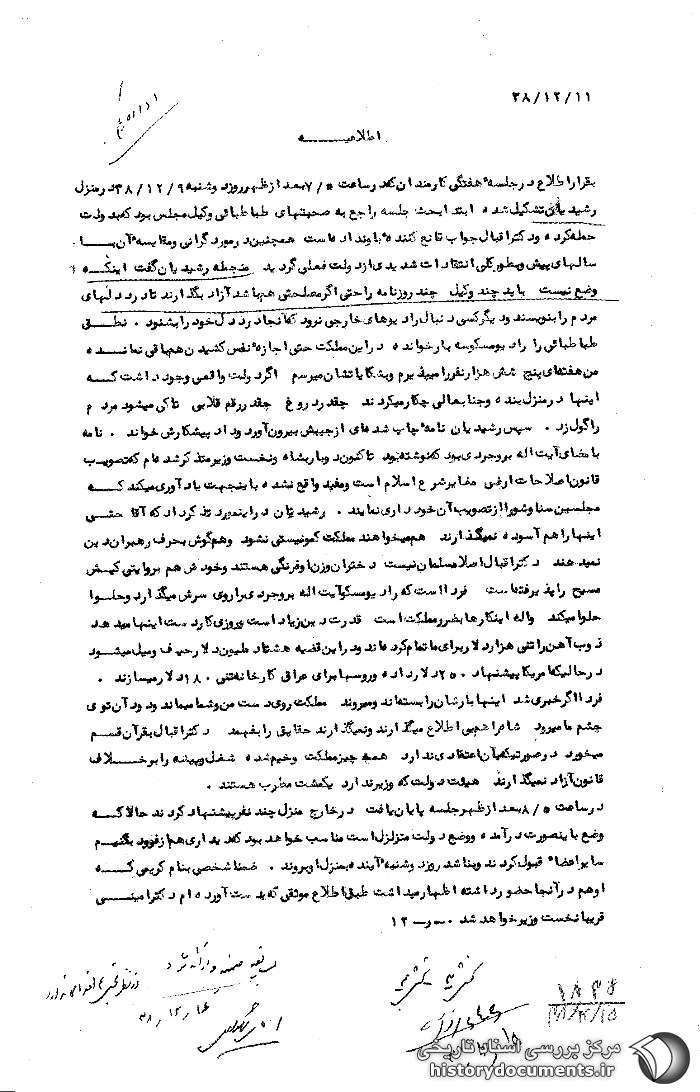 ۳۸/۱۲/۱۱
اطلاعیـــــه
بقرار اطلاع در جلسهٔ هفتگی کارمندان که در ساعت ۷/۵ بعد از ظهر روز دوشنبه ۳۸/۱۲/۹ در منزل
رشیدیان تشکیل شده ابتدا بحث جلسه راجع به صحبتهای طباطبائی وکیل مجلس بود که بدولت
حمله کرده و دکتر اقبال جواب قانع کننده باو نداده است همچنین در مورد گرانی و مقایسه آن بـــا
سالهای پیش و بطور کلی انتقادات شدیدی از دولت فعلی گردید منجمله رشیدیان گفت اینکـــه
وضع نیست باید چند وکیل چند روزنامه را حتی اگر مصلحتی هم باشد آزاد بگذارند تا درد دلهای
مردم را بنویسند و دیگر کسی دنبال رادیوهای خارجی نرود که آنجا درد دل خود را بشنود . نطـــق
طباطبائی را رادیو مسکو سه بار خوانده در این مملکت حتی اجازهٔ نفس کشیدن هم باقی نمانـــده
من هفته‌ای پنج شش هزار نفر را میپذیرم و بشکایاتشان میرسم اگر دولت واقعی وجود داشت کـــه
اینها در منزل بنده و جنابعالی چکار میکردند چقدر دروغ چقدر رقم قلابی تا کی میشود مردم
را گول زد . سپس رشیدیان نامهٔ چاپ شده‌ای از جیبش بیرون آورد و داد پیشکارش خواند . نامه
با مضای آیت اله بروجردی بود که نوشته بود تاکنون دوبار بشاه و نخست وزیر متذکر شده ام که تصویب
قانون اصلاحات ارضی مغایر شرع اسلام است و مفید واقع نشده باینجهت یادآوری میکند کـــه
مجلسین سنا و شورا از تصویب آن خودداری نمایند . رشیدیان در اینمورد تذکر داد که آقا حتـــی
اینها را هم آسوده نمیگذارند هم میخواهند مملکت کمونیستی نشود و هم گوش بحرف رهبران دین
نمیدهند دکتر اقبال اصلا مسلمان نیست دختران و زن او فرنگی هستند و خودش هم بروایتی کیـش
مسیح را پذیرفته است فردا است که رادیو مسکو آیت اله بروجردی را روی سرش میگذارد و حلوا
حلوا میکند واله اینکارها بضرر مملکت است قدرت دین زیاد است پروژی کار دست اینها میدهد
ذوب آهن را تنی هزار دلار برای ما تمام کرده اند و در این قضیه هشتاد ملیون دلار حیف و میل میشود
در حالیکه امریکا پیشنهاد ۲۵۰ دلار داده و روسها برای عراق کارخانه تنی ۱۸۰ دلار میسازند .
فردا اگر خبری شد اینها بارشان را بسته اند و میروند مملکت روی دست من و شما میماند و دود آن توی
چشم ما میرود شاه را هم بی اطلاع میگذارند و نمیگذارند حقایق را بفهمد دکتر اقبال بقرآن قسم
میخورد در صورتیکه بآن اعتقادی ندارد همه چیز مملکت وخیم شده شغل و پیشه را بر خـــلاف
قانون آزاد نمیگذارند هیئت دولت که وزیر ندارد یکمشت مطرب هستند .
در ساعت ۸/۵ بعد از ظهر جلسه پایان یافت در خارج منزل چند نفر پیشنهاد کردند حالا کـــه
وضع باینصورت در آمده و وضع دولت متزلزل است مناسب خواهد بود که دیداری هم از فرود بکنیــم
سایر اعضاء قبول کردند و بنا شد روز دوشنبه آینده بمنزل او بروند . ضمنا شخصی بنام کریمی کـــه
او هم در آنجا حضور داشته اظهار میداشت طبق اطلاع موثقی که بدست آورده ام دکتر امینـــی
قریبا نخست وزیر خواهد شد
۳۸/۱۲/۱۶
مرکز بررسی اسناد تاریخی
historydocuments.ir